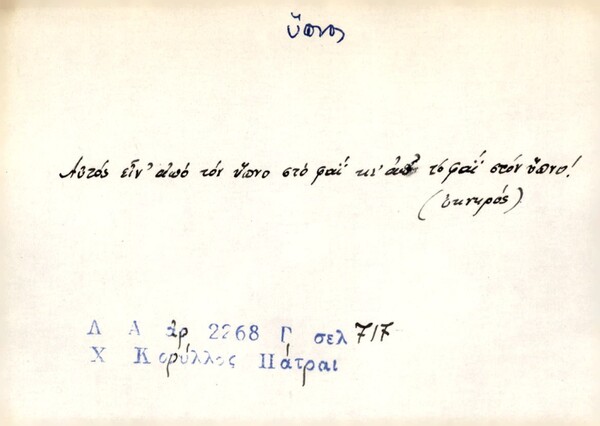 ὕπνος
Αὐτός εἶν' ἀπό τόν ὕπνο στό φαΐ κι' ἀπ' τό φαΐ στόν ὕπνο!
(ὀκνηρός)
Λ Α ἀρ 2268 Γ σελ 717
Χ Κορύλλος Πάτραι